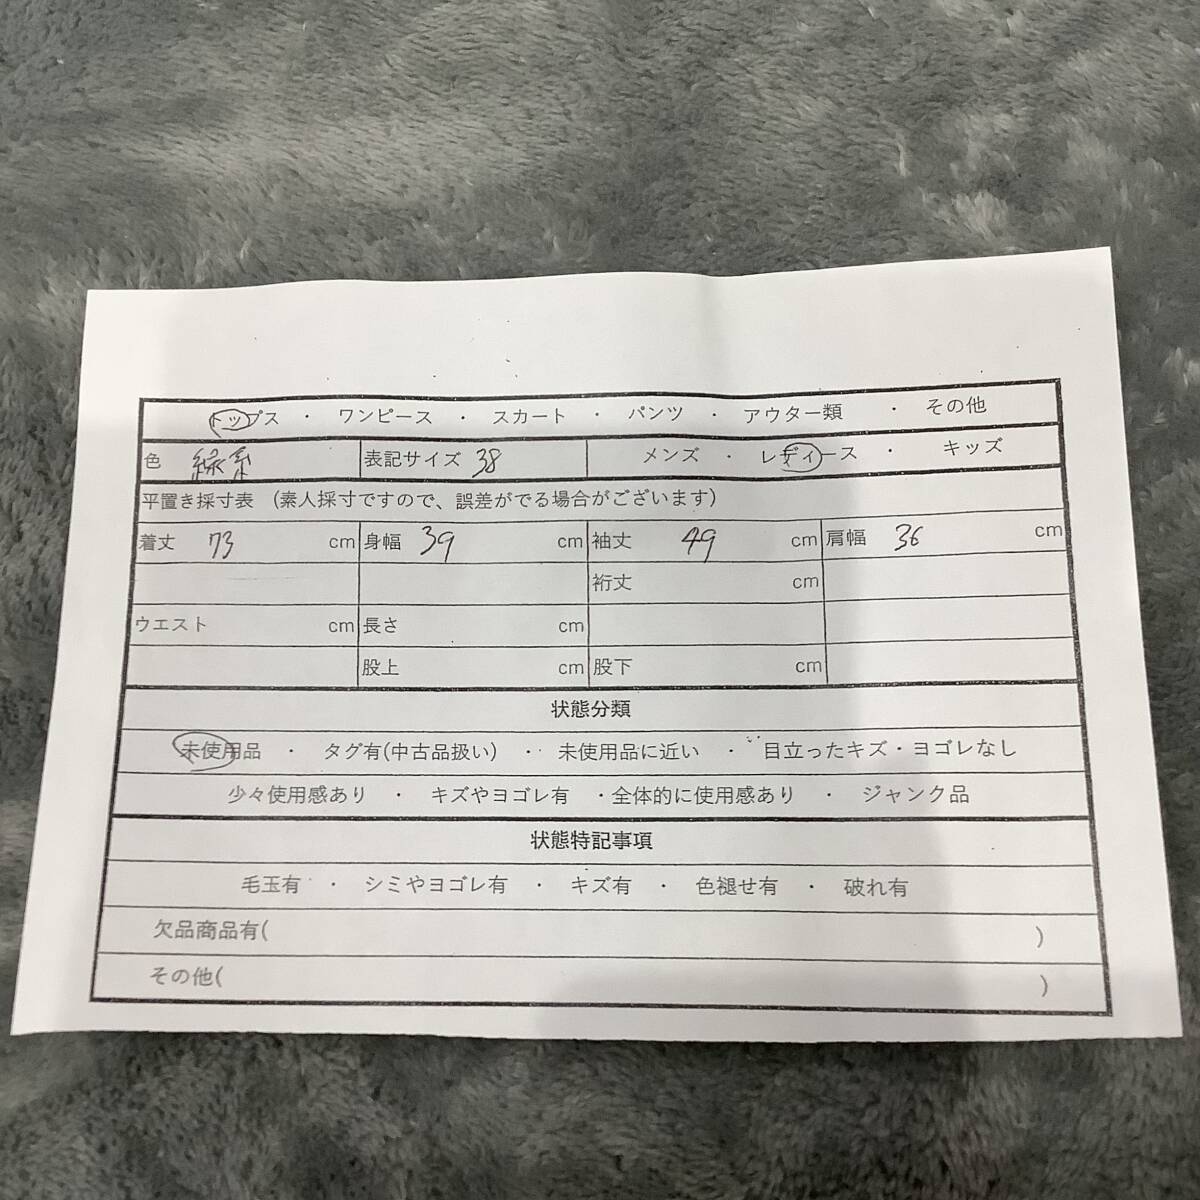 トップス ・ ワンピース ・ スカート ・ パンツ ・ アウター類 ・ その他
色 緑系 表記サイズ 38 メンズ ・ レディース ・ キッズ
平置き採寸表 (素人採寸ですので、誤差がでる場合がございます)
着丈 73 cm 身幅 39 cm 袖丈 49 cm 肩幅 36 cm
裄丈 cm
ウエスト cm 長さ cm
股上 cm 股下 cm
状態分類
未使用品 ・ タグ有(中古品扱い) ・ 未使用品に近い ・ 目立ったキズ・ヨゴレなし
少々使用感あり ・ キズやヨゴレ有 ・全体的に使用感あり ・ ジャンク品
状態特記事項
毛玉有 ・ シミやヨゴレ有 ・ キズ有 ・ 色褪せ有 ・ 破れ有
欠品商品有( )
その他( )